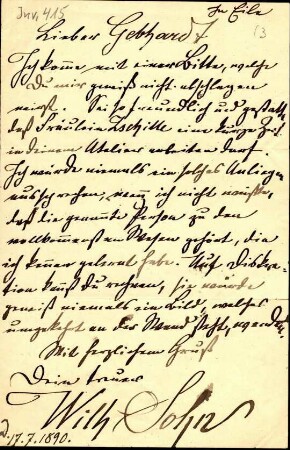 Inv. 415
In Eile
13
Lieber Gebhardt
Ich komme mit einer Bitte, welche
Du mir gewiß nicht abschlagen
wirst. Sei so freundlich und gestatte,
daß Fräulein Zschille eine kurze Zeit
in deinem Atelier arbeiten darf.
Ich würde niemals ein solches Anliegen
aussprechen, wenn ich nicht wüßte,
daß die genannte Person zu den
vollkommensten Wesen gehört, die
ich kennen gelernt habe. Auf Diskre-
tion kannst Du rechnen, sie würde
gewiß niemals ein Bild, welches
umgekehrt an der Wand steht,
Mit herzlichem Gruß
Dein treuer
Wilh. Sohn
D. 17.7.1890.